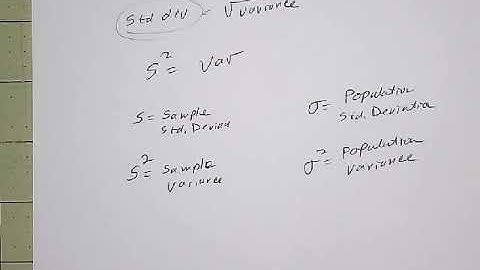 std dev = √variance
s² = var
s = sample
std. Deviation
σ = Population
Std. Deviation
s² = sample
variance
σ² = population
variance